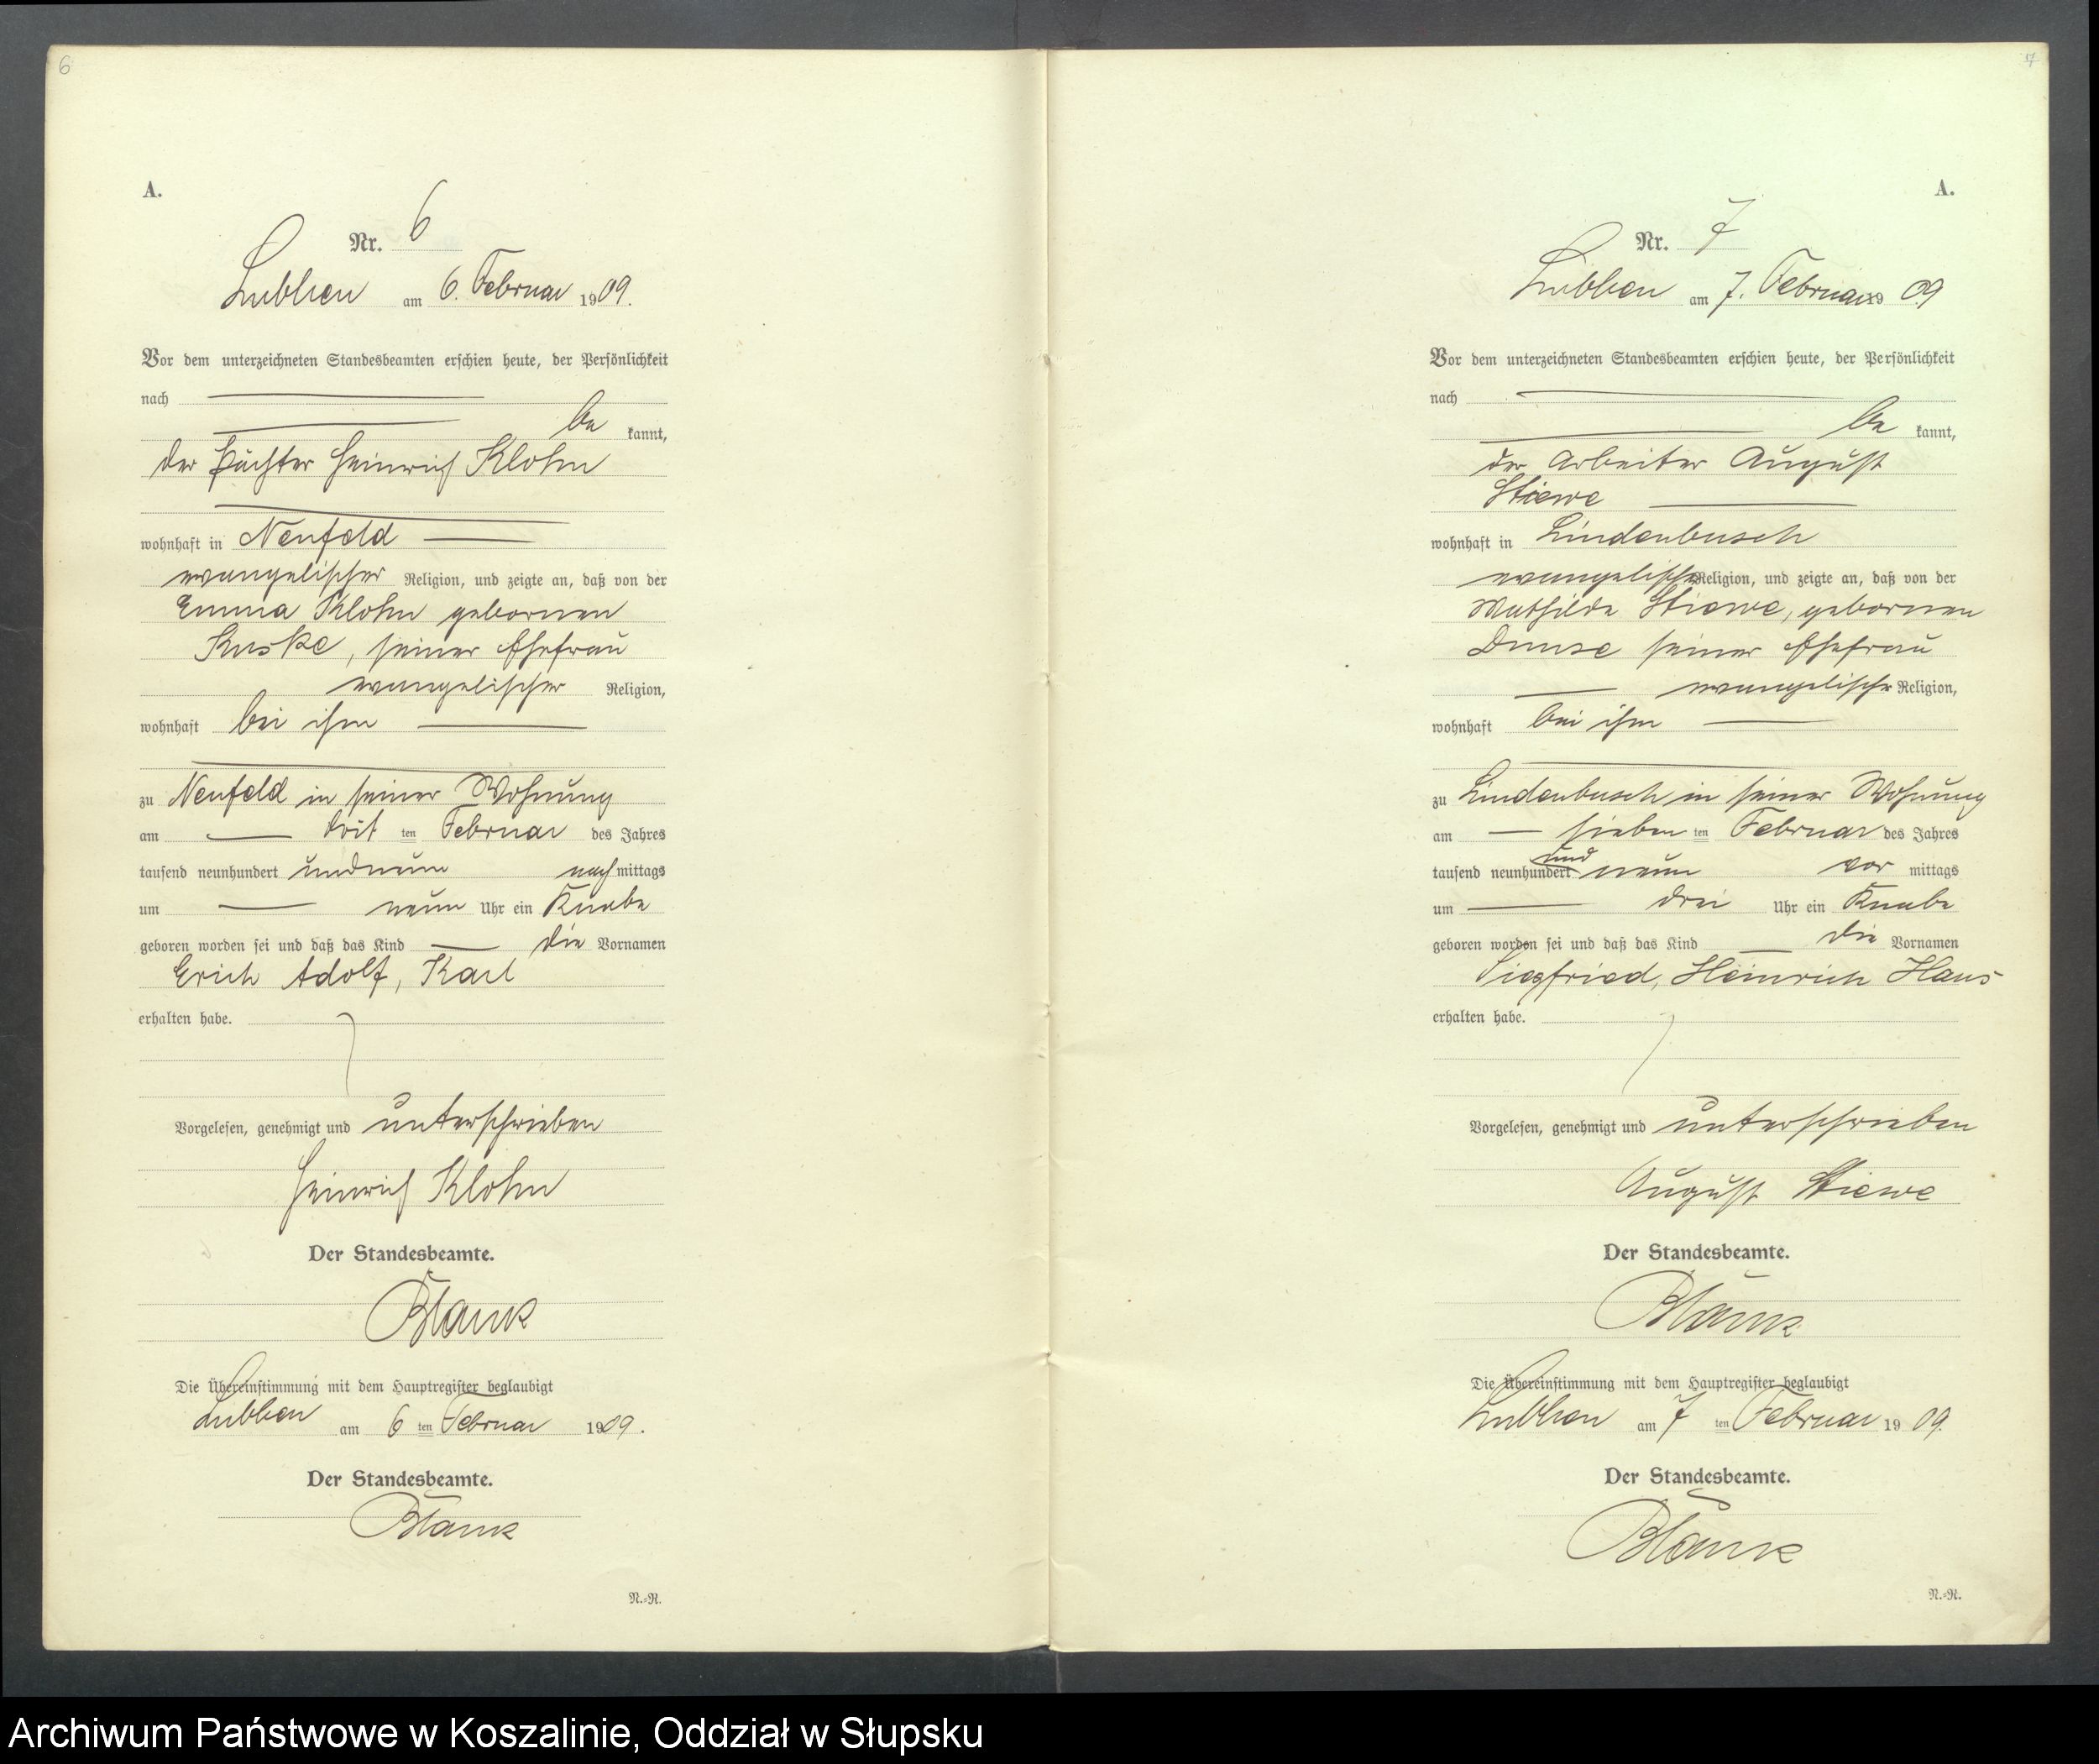 6
A.
Nr. 6
Lubben am 6. Februar 1909.
Vor dem unterzeichneten Standesbeamten erschien heute, der Persönlichkeit
nach
be kannt,
der Pächter Heinrich Klohn
wohnhaft in Neufeld
evangelischer Religion, und zeigte an, daß von der
Emma Klohn gebornen
Kuske, seiner Ehefrau
evangelischer Religion,
wohnhaft bei ihm
zu Neufeld in seiner Wohnung
am ten Februar des Jahres
tausend neunhundert undneun nachmittags
um neun Uhr ein Knabe
geboren worden sei und daß das Kind die Vornamen
Erich Adolf, Karl
erhalten habe.
Vorgelesen, genehmigt und unterschrieben
Heinrich Klohn
Der Standesbeamte.
Blank
Die Übereinstimmung mit dem Hauptregister beglaubigt
Lubben am 6 ten Februar 1909.
Der Standesbeamte.
Blank
N.-R.
7
A.
Nr. 7
Lubben am 7. Februar 19 09
Vor dem unterzeichneten Standesbeamten erschien heute, der Persönlichkeit
nach
be kannt,
der Arbeiter August
Stiewe
wohnhaft in Lindenbusch
evangelischer Religion, und zeigte an, daß von der
Mathilde Stiewe, gebornen
seiner Ehefrau
evangelischer Religion,
wohnhaft bei ihm
zu Lindenbusch in seiner Wohnung
am sieben ten Februar des Jahres
tausend neunhundert und neun vor mittags
um drei Uhr ein Knabe
geboren worden sei und daß das Kind die Vornamen
Siegfried, Heinrich Hans
erhalten habe.
Vorgelesen, genehmigt und unterschrieben
August Stiewe
Der Standesbeamte.
Blank
Die Übereinstimmung mit dem Hauptregister beglaubigt
Lubben am 7 ten Februar 19 09.
Der Standesbeamte.
Blank
N.-R.
Archiwum Państwowe w Koszalinie, Oddział w Słupsku